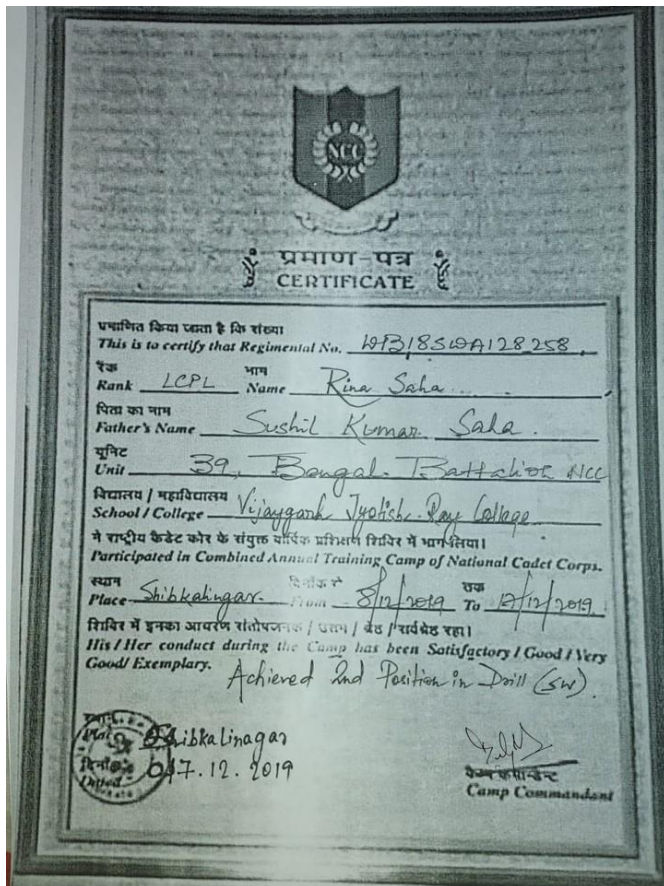 NCC
प्रमाण-पत्र
CERTIFICATE
प्रमाणित किया जाता है कि संख्या
This is to certify that Regimental No. WB18SWA128258
रैंक नाम
Rank LCPL Name Rina Saha
पिता का नाम
Father's Name Sushil Kumar Saha
यूनिट
Unit 39, Bengal Battalion NCC
विद्यालय / महाविद्यालय
School / College Vijaygarh Jyotish Ray College
ने राष्ट्रीय कैडेट कोर के संयुक्त वार्षिक प्रशिक्षण शिविर में भाग लिया।
Participated in Combined Annual Training Camp of National Cadet Corps.
स्थान दिनाँक से तक
Place Shibkalingar. From 8/12/2019 To 17/12/2019.
शिविर में इनका आचरण संतोषजनक / उत्तम / श्रेष्ठ / सर्वश्रेष्ठ रहा।
His / Her conduct during the Camp has been Satisfactory / Good / Very
Good / Exemplary.
Achieved 2nd Position in Drill (SW).
Shibkalinagar
दिनाँक
Dated 17.12.2019
कैम्प कमान्डेन्ट
Camp Commandant